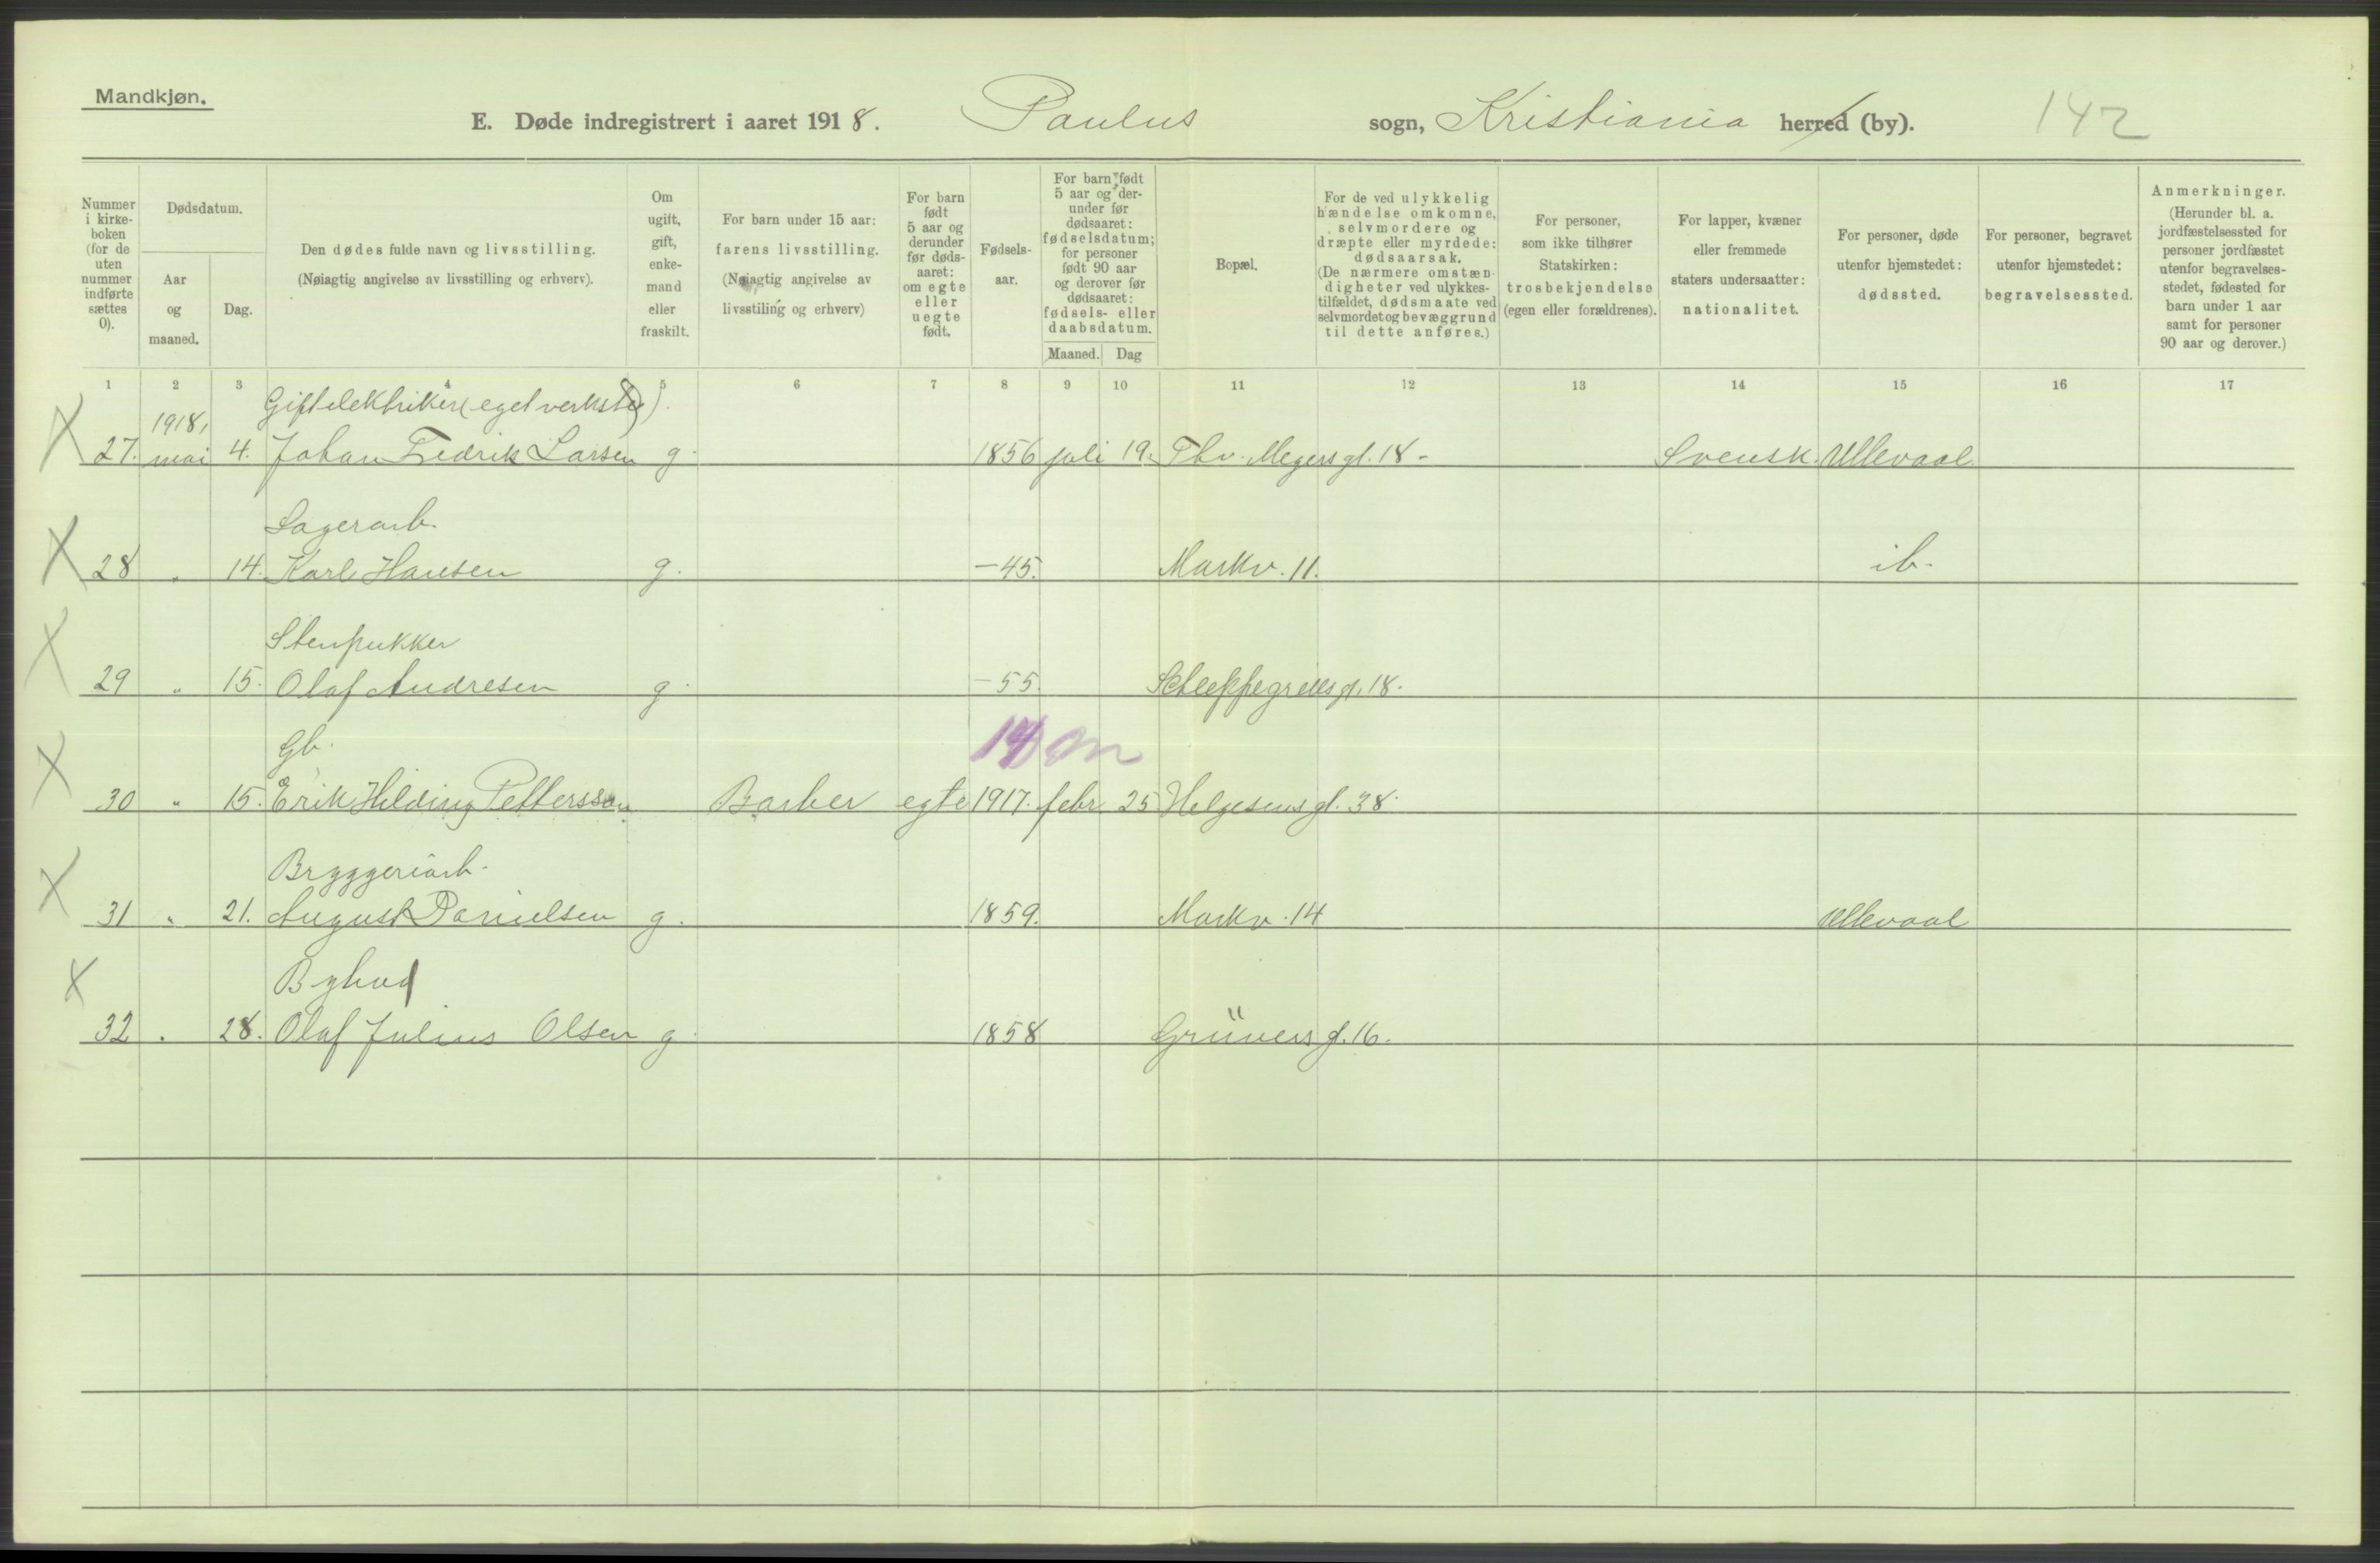 Mandkjøn.
E. Døde indregistrert i aaret 1918. Paulus sogn, Kristiania herred (by). 142
Nummer i kirke-boken (for de uten nummer indførte sættes 0).
Dødsdatum.
Aar og maaned.
Dag.
Den dødes fulde navn og livsstilling.
(Nøiagtig angivelse av livsstilling og erhverv).
Om ugift, gift, enke-mand eller fraskilt.
For barn under 15 aar: farens livsstilling.
(Nøiagtig angivelse av livsstiling og erhverv)
For barn født 5 aar og derunder før døds-aaret: om egte eller uegte født.
Fødsels-aar.
For barn født 5 aar og der-under før dødsaaret: fødselsdatum; for personer født 90 aar og derover før dødsaaret: fødsels- eller daabsdatum.
Maaned. Dag
Bopæl.
For de ved ulykkelig hændelse omkomne, selvmordere og dræpte eller myrdede: dødsaarsak. (De nærmere omstæn-digheter ved ulykkes-tilfældet, dødsmaate ved selvmordet og bevæggrund til dette anføres.)
For personer, som ikke tilhører Statskirken: trosbekjendelse (egen eller forældrenes).
For lapper, kvæner eller fremmede staters undersaatter: nationalitet.
For personer, døde utenfor hjemstedet: dødssted.
For personer, begravet utenfor hjemstedet: begravelsessted.
Anmerkninger.
(Herunder bl. a. jordfæstelsessted for personer jordfæstet utenfor begravelses-stedet, fødested for barn under 1 aar samt for personer 90 aar og derover.)
1 2 3 4 5 6 7 8 9 10 11 12 13 14 15 16 17
(eget verksted).
1918,
27. mai 4. Johan Fredrik Larsen g. 1856 juli 19. Thv. Meyers gt. 18 - Svensk. Ullevaal
Lagerarb.
28 " 14. Karl Hansen g. - 45. Markv. 11. ib.
Stenpukker
29 " 15. Olaf Andresen g. - 55. Schleppegrells gt. 18.
Gb.
30 " 15. Erik Hilding Pettersson Barber egte 1917. febr. 25 Helgesens gt. 38.
Bryggeriarb.
31 " 21. August Danielsen g. 1859. Markv. 14 Ullevaal
Bybud
32 " 28. Olaf Julius Olsen g. 1858 Grüners gt. 16.